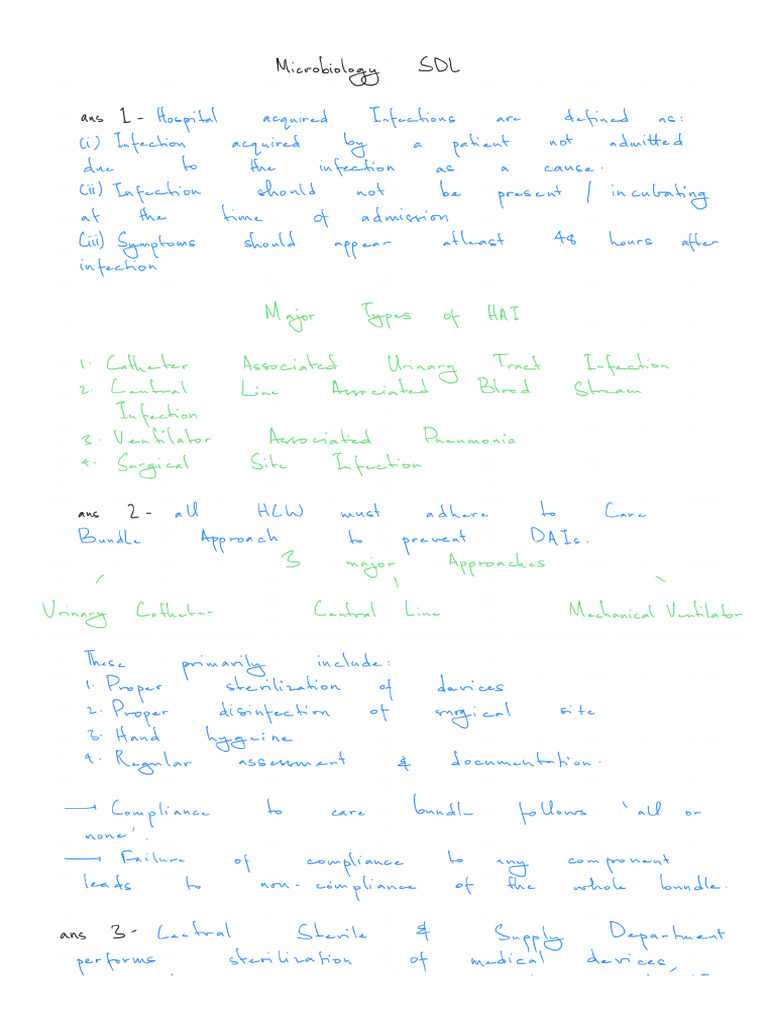 Microbiology SDL
ans 1 - Hospital acquired Infections are defined as:
(i) Infection acquired by a patient not admitted
due to the infection as a cause.
(ii) Infection should not be present / incubating
at the time of admission
(iii) Symptoms should appear atleast 48 hours after
infection
Major Types of HAI
1. Catheter Associated Urinary Tract Infection
2. Central Line Associated Blood Stream
Infection
3. Ventilator Associated Pneumonia
4. Surgical Site Infection
ans 2 - all HCW must adhere to Care
Bundle Approach to prevent DAIs.
3 major Approaches
Urinary Catheter Central Line Mechanical Ventilator
These primarily include:
1. Proper sterilization of devices
2. Proper disinfection of surgical site
3. Hand hygeine
4. Regular assessment & documentation.
→ Compliance to care bundle follows 'all or
none'.
→ Failure of compliance to any component
leads to non-compliance of the whole bundle.
ans 3 - Central Sterile & Supply Department
performs sterilization of medical devices,